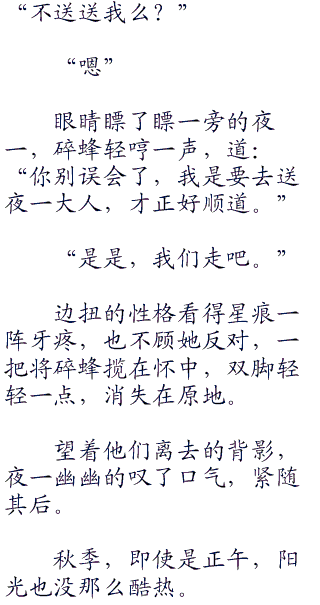 “不送送我么？”
“嗯”
眼睛瞟了瞟一旁的夜
一，碎蜂轻哼一声，道：
“你别误会了，我是要去送
夜一大人，才正好顺道。”
“是是，我们走吧。”
边扭的性格看得星痕一
阵牙疼，也不顾她反对，一
把将碎蜂揽在怀中，双脚轻
轻一点，消失在原地。
望着他们离去的背影，
夜一幽幽的叹了口气，紧随
其后。
秋季，即使是正午，阳
光也没那么酷热。